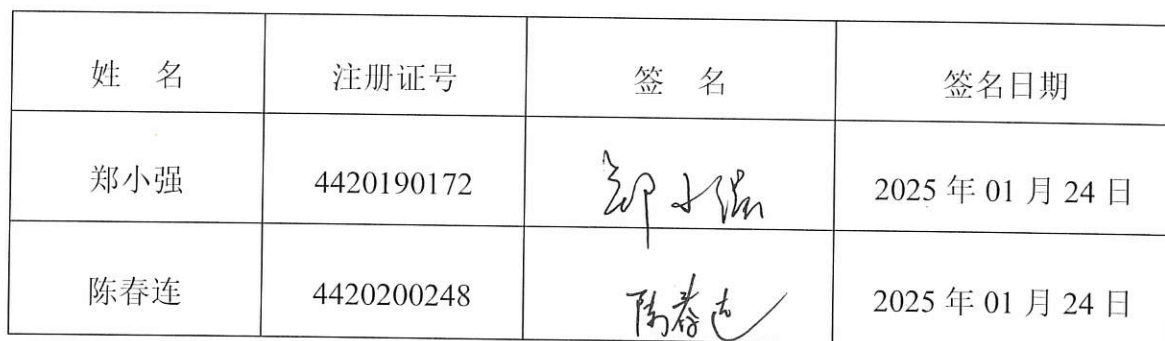 姓 名 注册证号 签 名 签名日期
郑小强 4420190172 郑小强 2025 年 01 月 24 日
陈春连 4420200248 陈春连 2025 年 01 月 24 日